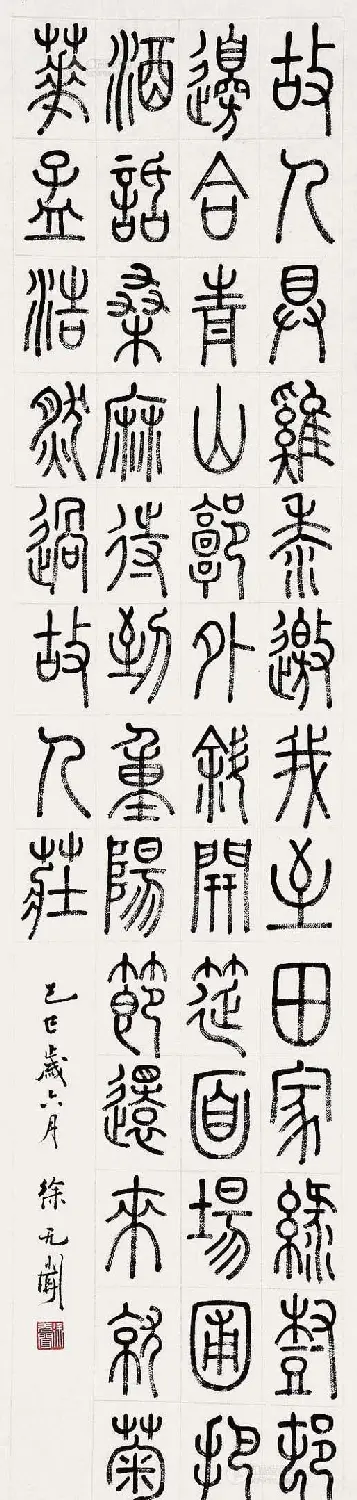 故人具雞黍邀我至田家綠樹邨
邊合青山郭外斜開筵面場圃把
酒話桑麻待到重陽節還來就菊
華孟浩然過故人莊
己巳歲六月 徐无聞